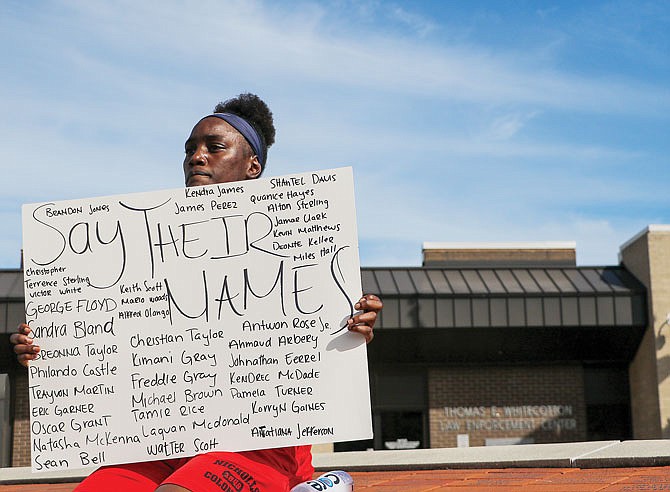 Brandon Jones
Kendra James
Shantel Davis
James Perez
Quanice Hayes
Alton Sterling
Jamar Clark
Kevin Matthews
Deonte Keller
Miles Hall
Say Their
Names
Christopher
Terrence Sterling
Victor White
Keith Scott
Mario Woods
Alfred Olongo
George Floyd
Sandra Bland
Breonna Taylor
Philando Castle
Trayvon Martin
Eric Garner
Oscar Grant
Natasha McKenna
Sean Bell
Christian Taylor
Kimani Gray
Freddie Gray
Michael Brown
Tamir Rice
Laquan Mcdonald
Walter Scott
Antwon Rose Jr.
Ahmaud Arbery
Johnathan Ferrel
Kendrec McDade
Pamela Turner
Korryn Gaines
Atatiana Jefferson
THOMAS E. WHITECOTTON
LAW ENFORCEMENT CENTER
NICHOLS
COLO